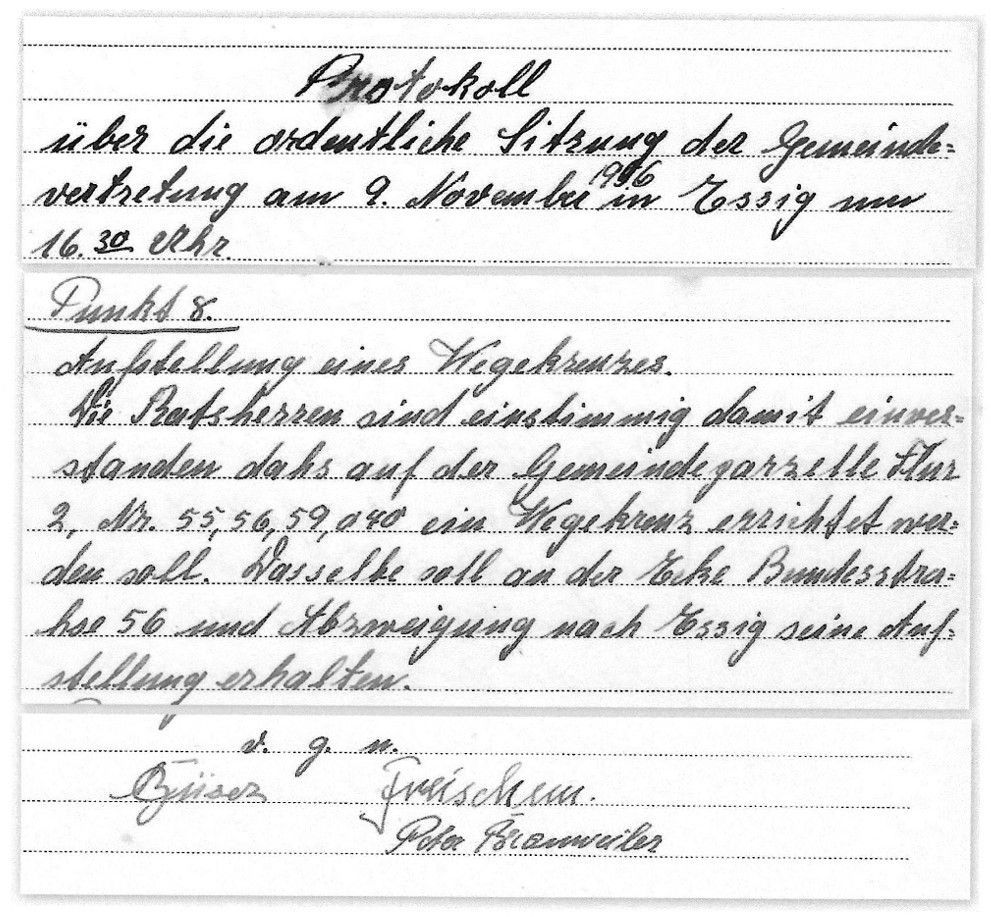 Protokoll
über die ordentliche Sitzung der Gemeinde=
vertretung am 9. November 1956 in Essig um
16.30 Uhr.
Punkt 8.
Aufstellung eines Wegekreuzes.
Die Ratsherren sind einstimmig damit einver=
standen dahs auf der Gemeindeparzelle Flur
2, Nr. 55, 56, 59, 040 ein Wegekreuz errichtet wer=
den soll. Dasselbe soll an der Ecke Bundesstra=
hse 56 und Abzweigung nach Essig seine Auf=
stellung erhalten.
v. g. u.
Freischem.
Peter Brauweiler